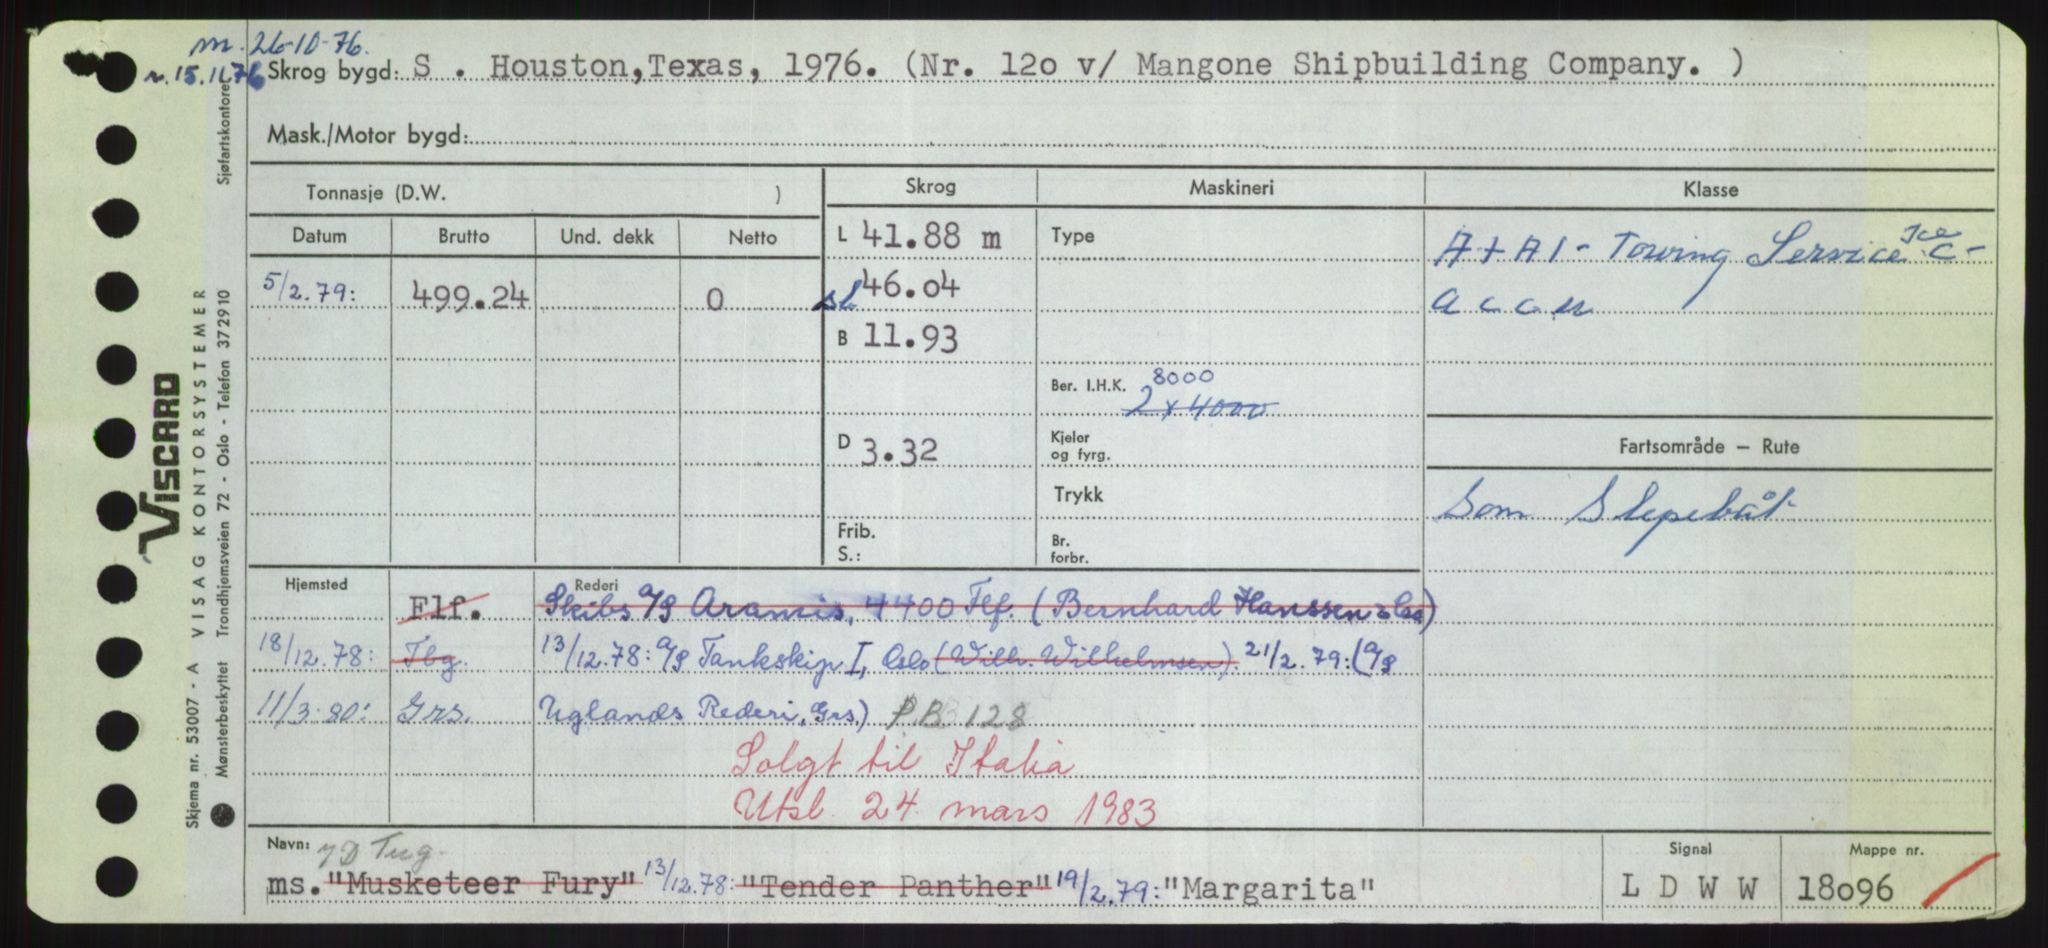 m. 26-10-76.
n. 15.11.76 Skrog bygd: S . Houston, Texas, 1976. (Nr. 12o v/ Mangone Shipbuilding Company. )
Mask./Motor bygd:
Tonnasje (D.W. ) Skrog Maskineri Klasse
Datum Brutto Und. dekk Netto L 41.88 m Type A + A 1 - Towing Service Ice C -
5/2.79: 499.24 0 sl 46.04 a c c u
B 11.93
Ber. I.H.K. 8000
2 x 4000
D 3.32 Kjeler og fyrg. Fartsområde — Rute
Trykk Som Slepebåt
Frib. S.: Br. forbr.
Hjemsted Rederi
Elf. Skibs A/S Aramis, 4400 Flf. (Bernhard Hanssen & Co)
18/12.78: Tbg. 13/12.78: A/S Tankskip I, Oslo (Wilh. Wilhelmsen). 21/2.79: (A/S
11/3.80: Grs. Uglands Rederi, Grs.) PB 128
Solgt til Italia
Utsl. 24 mars 1983
Navn: 7D Tug. Signal Mappe nr.
ms. "Musketeer Fury" 13/12.78: "Tender Panther" 19/2.79: "Margarita" L D W W 18o96
VISCARD
Skjema nr. 53007 - A VISAG KONTORSYSTEMER
Mønsterbeskyttet Trondhjemsveien 72 - Oslo - Telefon 372910 Sjøfartskontoret